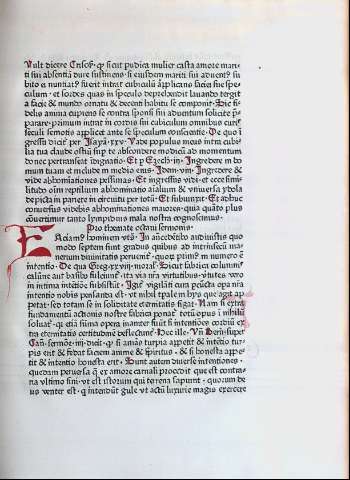 Vult dicere Crisos. q sicut pudica mulier casta amore mari-
ti sui absentiā dure sustinens. si eiusdem mariti sui aduentꝰ su
bito ei nuntiatꝰ fuerit intrat cubiculū applicans faciē suā spe-
culum. et sordes quas in speculo deprehendit lauando tergit
a facie & mundo ornatu & decenti habitu se componit. Sic fi-
delis anima cupiens se contra sponsi sui aduentum solicite p̄-
parare. primum intrat in cordis sui cubiculum omnibus curis
seculi semotis applicet ante se speculum conscientie. De quo i
gressu dicit per Isayā. xxv. Vade populus meus intra cubi-
lia tua claude ostiū sup te abscondere modicū ad momentum
donec pertranseat idignatio. Et p Ezech. Ingredere in do
mum tuam et include in medio eius. Idem. viii. Ingredere &
vide abhominationes pessimas. Et ingressus vidi. et ecce simi-
litudo oīm reptilium abhominatio aīalium & vniuersa ydola
depicta in pariete in circuitu per totū. Et subiunxit. Et adhuc
conuersus videbis abhominationes maiores. quia quāto plus
cōuertimur tanto lympidius mala nostra cognoscimus.
Pro themate octaui sermonis.
Faciamꝰ hominem vt s̄. In antecedētibꝰ audiuistis quo
modo septem sunt gradus quibus ad intrinsecā ma-
nerium diuinitatis peruenit. quoꝝ primꝰ in numero ē
intentio. De qua Greg. xxviii. moral. Sicut fabrica columnis
colūne aūt basibꝰ fulciunt. ita vita nr̄a virtutibus. virtutes vero
in intima intētiōe subsistūt. Igit vigilāti cura pēsata opera nr̄a
intentio nobis pensanda est. vt nihil tpale in hijs que agit ap-
petat. sed totam se in soliditate eternitatis figat. Nam si extra
fundamentū actionis nostre fabrica ponat. totū opus ī nihilū
soluat. q etiā firma opera inaniter fiūt si intentiōes cordiū ex
tra eternitatis certitudinē deflectunt. Hec ille. Vn Bern super
Can. sermōe. dicit. q si amās turpia appetit & itētio tur-
pis erit & reddat faciem anime & spiritus. & si honesta appe-
tit & intentio honesta erit. Sunt autem diuerse intentiones.
quedam peruersa q ex amore carnali procedit que est contra-
ria vltimo fini. vt est istorum qui terrena sapiunt. quorum de
us venter est. q intendūt gule vt actū luxurie magis exercere